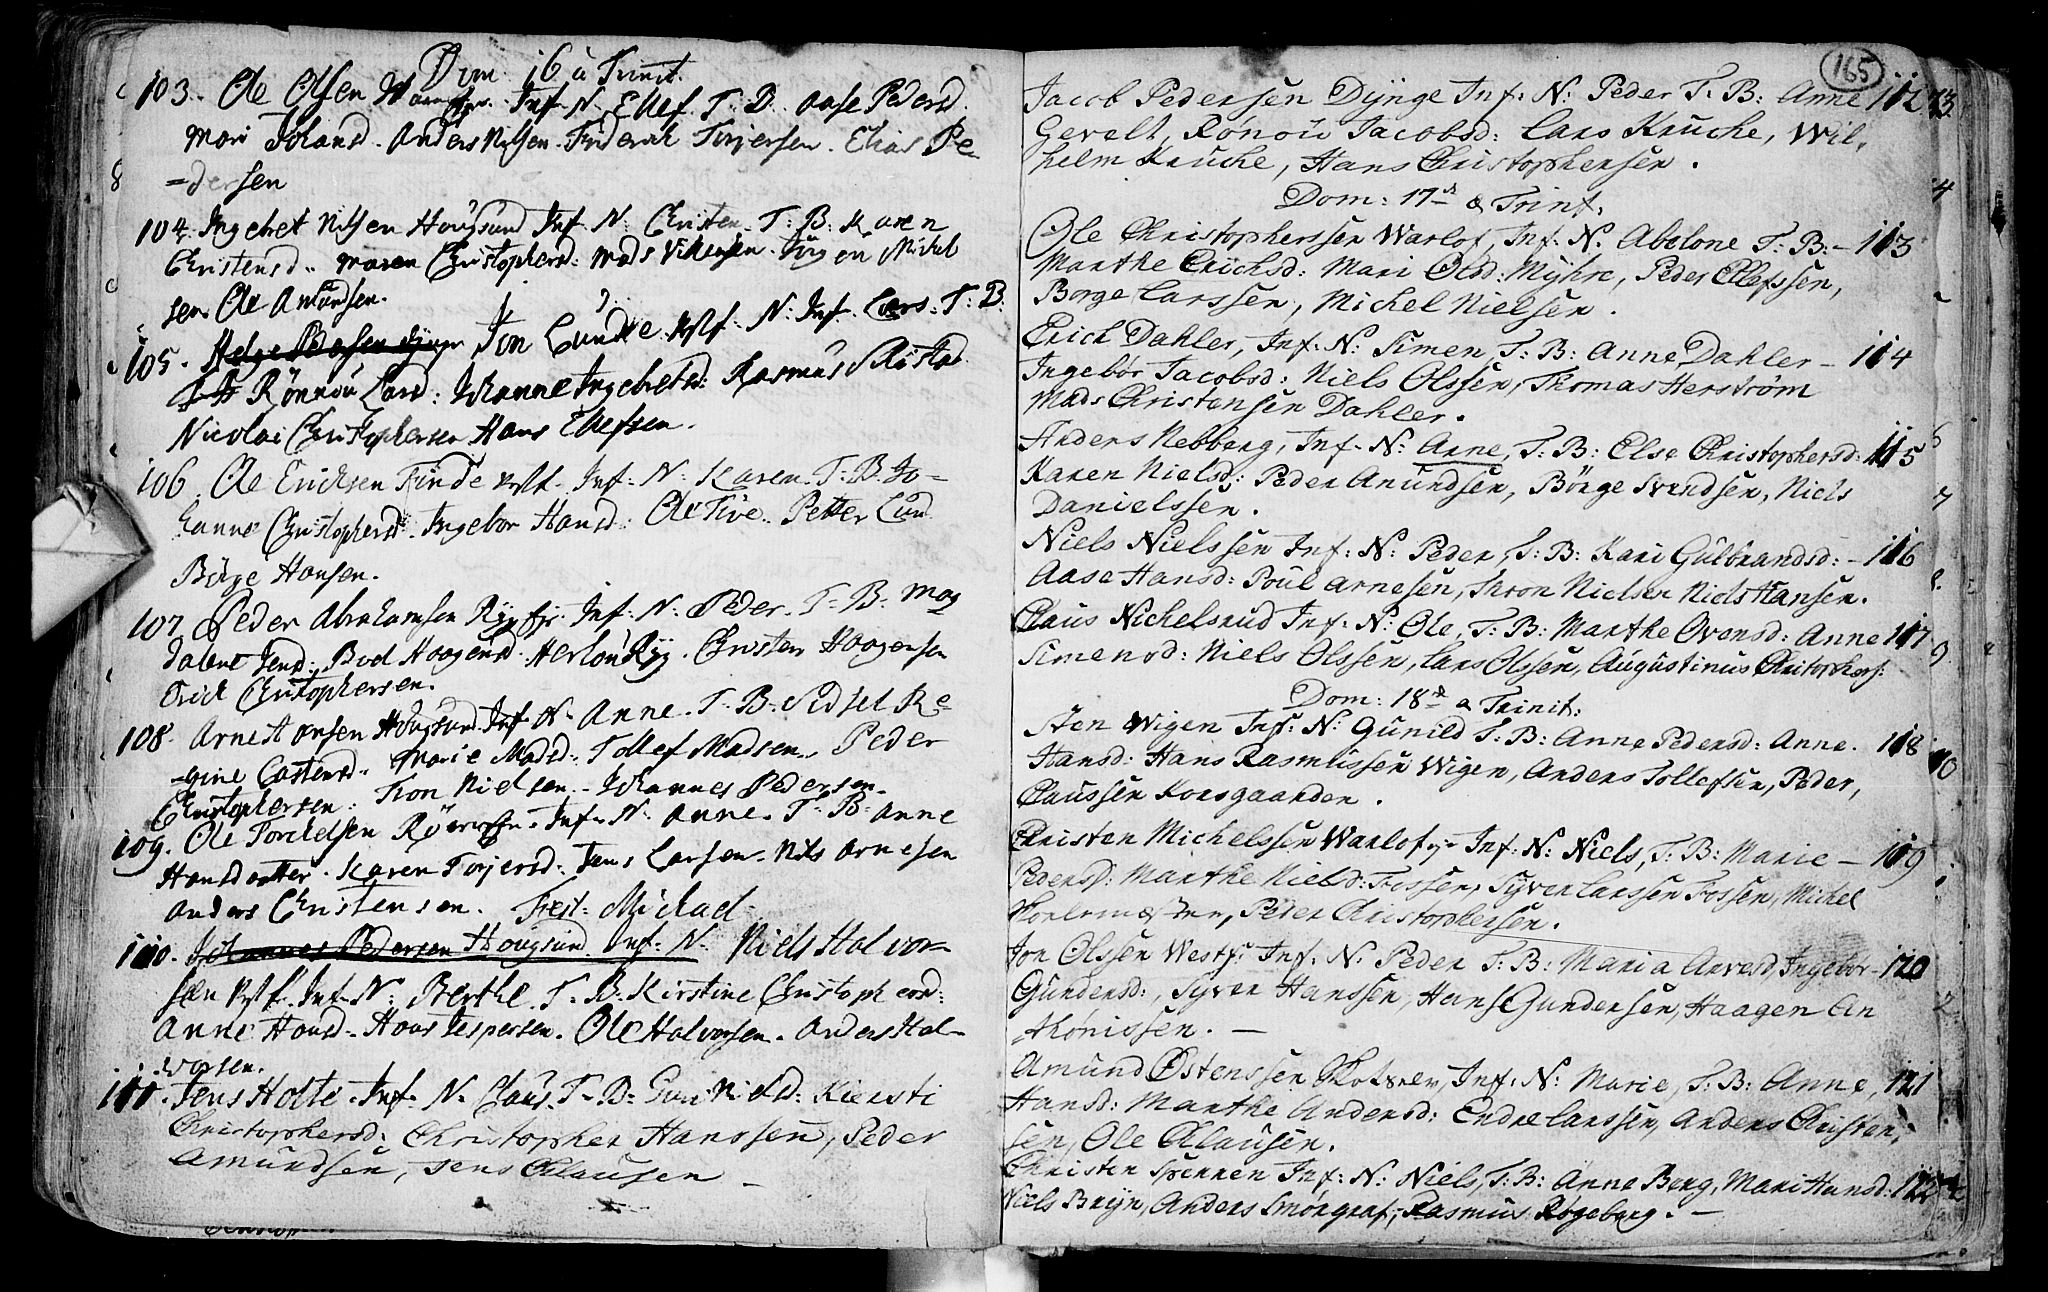 Dom. 16 a Trinit.
103. Ole Olsen Inf. N. Ellef. T. B. Aase Pedersd.
Mari Johansd. Anders Nilsen. Friderich Torjersen. Elias Pe-
=dersen
104. Ingebret Nilsen Hougsund Inf. N. Christen. T. B. Karen
Christensd. Maren Christophersd: Mads Michel
sen. Ole Amundsen.
105. Helge Pedersen Jon Lunde Vestf. N. Inf. Lars. T. B.
Rönnou Larsd: Johanne Ingebretsd: Rasmus
Nicolai Christophersen Hans Ellefsen.
106. Ole Ericksen Finde Vestf. Inf. N. Karen. T. B. Jo-
hanne Christophersd. Ingebor Hansd: Ole Tive. Petter Lund
Börge Hansen.
107. Peder Abrahamsen Inf. N. Peder. T. B. Mag
dalene Jensd. Boel Haagensd. Christen Haagensen
Erick Christophersen.
108. Arne Hansen Hougsund. Inf. N. Anne. T. B. Sidsel Re-
=gine Castensd. Marie Madsd. Tollef Madsen. Peder
Christophersen. Tron Nielsen. Johannes Pedersen.
109. Ole Torchelsen Inf. N. Anne. T. B. Anne
Hansdaatter. Karen Torjersd: Jens Larsen. Nils Arnesen
Anders Christensen. Fest: Michael
110. Johannes Pedersen Hougsund. Inf. N. Niels Halvor-
sen Vestf. Inf. N. Berthe. T. B. Kirstine Christophersd:
Anne Hansd. Hans Jespersen. Ole Halvorsen. Anders Hal-
vorsen.
111. Jens Holte. Inf. N. Claus. T. B. Gunnildsd: Kiersti
Christophersd: Christopher Hanssen, Peder
Amundsen, Jens Clausen —
165
Jacob Pedersen Dynge Inf: N: Peder T: B: Anne 112
Gevelt, Rönou Jacobsd: Lars Kruche, Wil,
helm Kruche, Hans Christophersen.
Dom: 17 a Trinit.
Ole Christopherssen Warlof, Inf. N. Abelone T. B: — 113
Marthe Erichsd: Mari Olsd: Myhre, Peder Ellefssen,
Borge Larssen, Michel Nielsen.
Erich Dahler, Inf: N: Simen, T: B: Anne Dahler — 114
Ingebor Jacobsd: Niels Olssen, Thomas Herström
Mads Christensen Dahler.
Anders Nebberg, Inf. N: Arne, T: B: Else Christophersd: 115
Karen Nielsd: Peder Amundsen, Börge Svendsen, Niels
Danielssen.
Niels Nielssen Inf: N: Peder, T: B: Kari Gulbrandsd: — 116
Aase Hansd: Poul Arnesen, Thron Nielsen Niels Hansen.
Claus Nichelsrud Inf: N: Ole, T: B: Marthe Ovensd: Anne 117
Simensd: Niels Olssen, Lars Olssen, Augustinus Christophers:
Dom: 18 a Trinit:
Sten Wigen Inf: N: Gunild T: B: Anne Pedersd: Anne. 118
Hansd: Hans Rasmussen Wigen, Anders Tollefsen, Peder,
Claussen Korsgaarden.
Christen Michelssen Warlof Inf: N: Niels, T: B: Marie — 119
Pedersd: Marthe Nielsd: Fossen, Syver Larssen Fossen, Michel
Peder Christophersen.
Jon Olssen Westf: Inf: N: Peder T: B: Maria Arvesd, Ingebor — 120
Gundersd:, Syver Hanssen, Hans Gundersen, Haagen An
thonissen. —
Amund Östenssen Inf: N: Marie, T: B: Anne, 121
Hansd: Marthe Andersd: Endre Larssen, Anders Christen,
sen, Ole Clausen.
Christen Sperren Inf: N: Niels, T: B: Anne Berg, Mari Hansd: 122
Niels Bryn, Anders Smörgraf, Rasmus Rögeberg. —